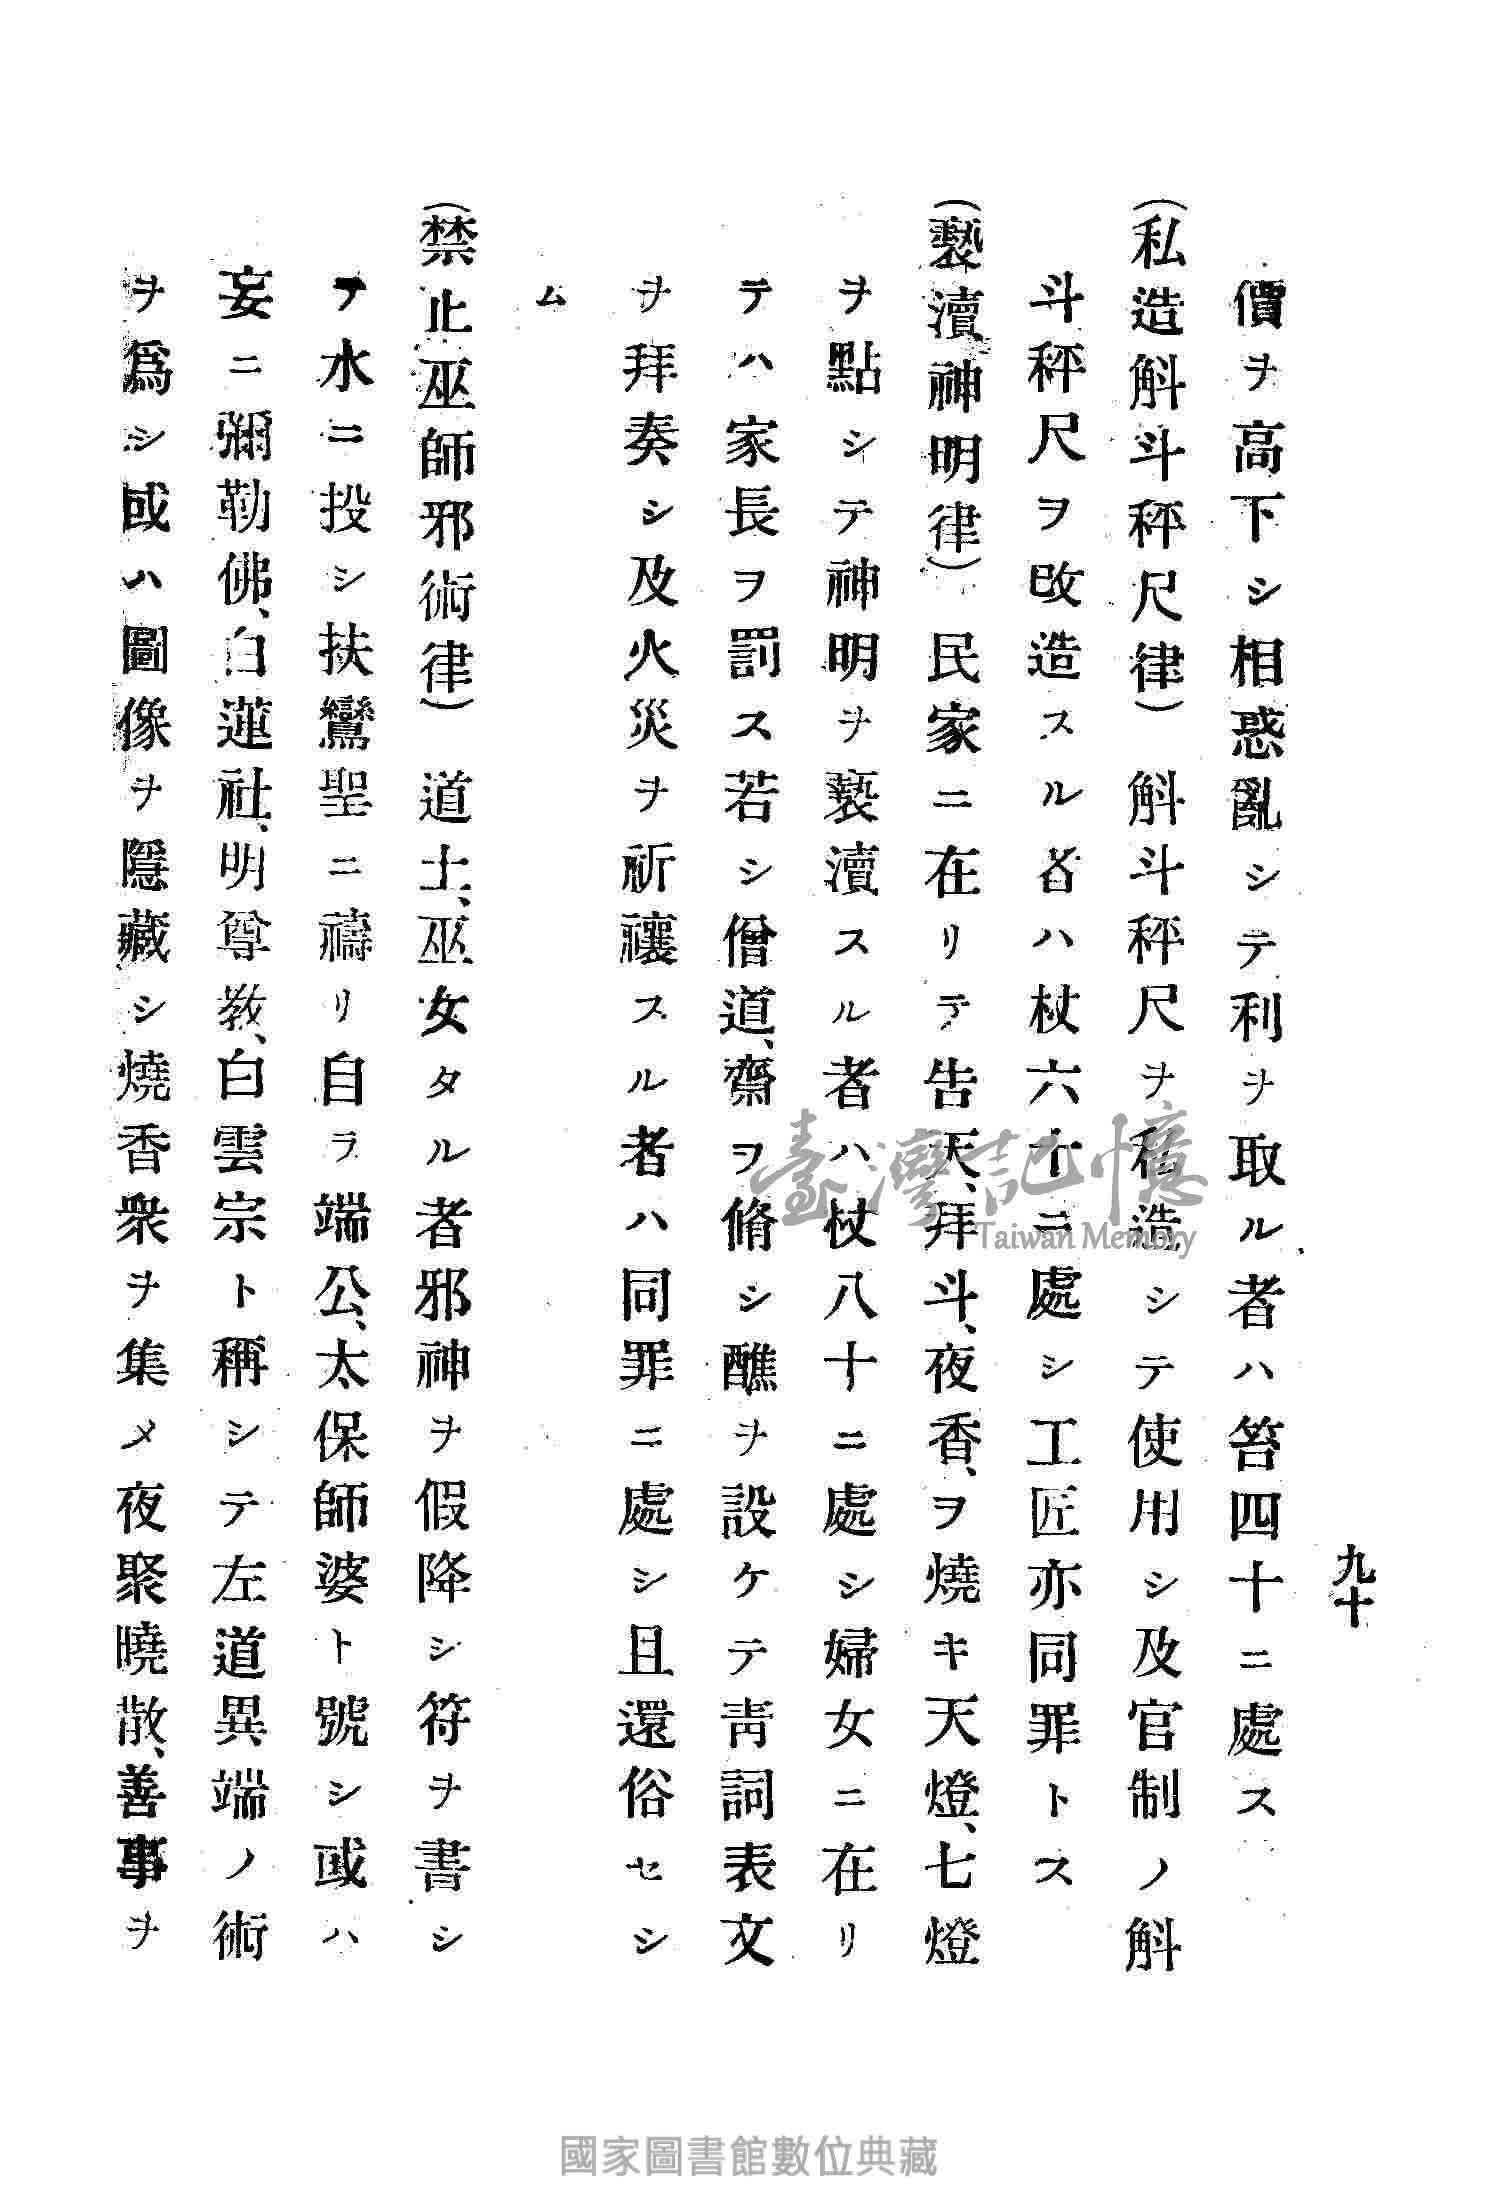 九十
價ヲ高下シ相惑亂シテ利ヲ取ル者ハ笞四十ニ處ス
(私造斛斗秤尺律)斛斗秤尺ヲ私造シテ使用シ及官制ノ斛
斗秤尺ヲ改造スル者ハ杖六十ニ處シ工匠亦同罪トス
(褻瀆神明律)民家ニ在リテ告天、拜斗、夜香、ヲ燒キ天燈、七燈
ヲ點シテ神明ヲ褻瀆スル者ハ杖八十ニ處シ婦女ニ在リ
テハ家長ヲ罰ス若シ僧道、齋ヲ脩シ醮ヲ設ケテ靑詞表文
ヲ拜奏シ及火災ヲ祈禳スル者ハ同罪ニ處シ且還俗セシ
ム
(禁止巫師邪術律)道士、巫女タル者邪神ヲ假降シ符ヲ書シ
テ水ニ投シ扶鸞聖ニ禱リ自ラ端公、太保師婆ト號シ或ハ
妄ニ彌勒佛、白蓮社、明尊敎、白雲宗ト稱シテ左道異端ノ術
ヲ爲シ或ハ圖像ヲ隱藏シ燒香衆ヲ集メ夜聚曉散、善事ヲ
臺灣記憶
Taiwan Memory
國家圖書館數位典藏